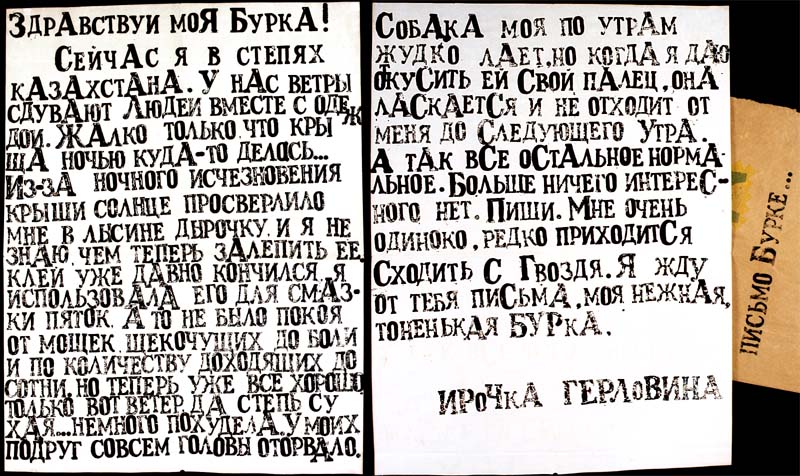 ЗДРАВСТВУЙ МОЯ БУРКА!
СЕЙЧАС Я В СТЕПЯХ
КАЗАХСТАНА. У НАС ВЕТРЫ
СДУВАЮТ ЛЮДЕЙ ВМЕСТЕ С ОДЕЖ
ДОЙ. ЖАЛКО ТОЛЬКО ЧТО КРЫ
ША НОЧЬЮ КУДА-ТО ДЕЛАСЬ...
ИЗ-ЗА НОЧНОГО ИСЧЕЗНОВЕНИЯ
КРЫШИ СОЛНЦЕ ПРОСВЕРЛИЛО
МНЕ В ЛЫСИНЕ ДЫРОЧКУ. И Я НЕ
ЗНАЮ, ЧЕМ ТЕПЕРЬ ЗАЛЕПИТЬ ЕЕ.
КЛЕЙ УЖЕ ДАВНО КОНЧИЛСЯ, Я
ИСПОЛЬЗОВАЛА ЕГО ДЛЯ СМАЗ-
КИ ПЯТОК. А ТО НЕ БЫЛО ПОКОЯ
ОТ МОШЕК ЩЕКОЧУЩИХ ДО БОЛИ
И ПО КОЛИЧЕСТВУ ДОХОДЯЩИХ ДО
СОТНИ, НО ТЕПЕРЬ УЖЕ ВСЕ ХОРОШО
ТОЛЬКО ВОТ ВЕТЕР, ДА СТЕПЬ СУ
ХАЯ...НЕМНОГО ПОХУДЕЛА. У МОИХ
ПОДРУГ СОВСЕМ ГОЛОВЫ ОТОРВАЛО.
СОБАКА МОЯ ПО УТРАМ
ЖУДКО ЛАЕТ, НО КОГДА Я ДАЮ
ОКУСИТЬ ЕЙ СВОЙ ПАЛЕЦ, ОНА
ЛАСКАЕТСЯ И НЕ ОТХОДИТ ОТ
МЕНЯ ДО СЛЕДУЮЩЕГО УТРА.
А ТАК ВСЕ ОСТАЛЬНОЕ НОРМА
ЛЬНОЕ. БОЛЬШЕ НИЧЕГО ИНТЕРЕС-
НОГО НЕТ. ПИШИ. МНЕ ОЧЕНЬ
ОДИНОКО, РЕДКО ПРИХОДИТСЯ
СХОДИТЬ С ГВОЗДЯ. Я ЖДУ
ОТ ТЕБЯ ПИСЬМА, МОЯ НЕЖНАЯ,
ТОНЕНЬКАЯ БУРКА.
ИРОЧКА ГЕРЛОВИНА
ПИСЬМО БУРКЕ...